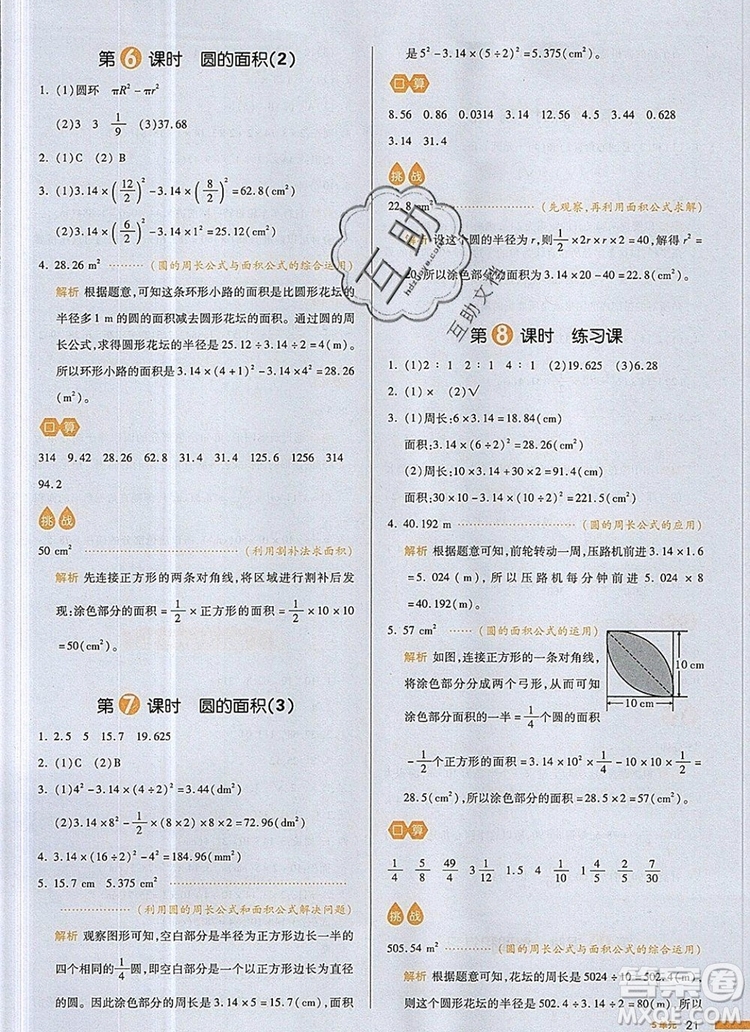 第6课时 圆的面积(2)
1. (1)圆环 πR²-πr²
(2)3 3 1/9 (3)37.68
2. (1)C (2)B
3. (1)3.14×(12/2)²-3.14×(8/2)²=62.8(cm²)
(2)3.14×(6/2)²-3.14×1²=25.12(cm²)
4. 28.26 m² (圆的周长公式与面积公式的综合运用)
解析 根据题意,可知这条环形小路的面积是比圆形花坛的
半径多1 m的圆的面积减去圆形花坛的面积。通过圆的周
长公式,求得圆形花坛的半径为25.12÷3.14÷2=4(m),
所以环形小路的面积是3.14×(4+1)²-3.14×4²=28.26
(m²)。
口算
314 9.42 314 28.26 62.8 31.4 125.6 1256 314
94.2
挑战
50 cm² (利用割补法求面积)
解析 先连接正方形的两条对角线,将区域进行割补后发
现:涂色部分的面积=1/2×正方形的面积=1/2×10×10
=50(cm²)。
第7课时 圆的面积(3)
1. 2.5 5 15.7 19.625
2. (1)C (2)B
3. (1)4²-3.14×(4÷2)²=3.44(dm²)
(2)3.14×(8÷2)²×2-8×(8×2)×2=72.96(cm²)
4. 3.14×(12÷2+2)²-4²=184.96(mm²)
5. 15.7 cm 5.375 cm²
(利用圆的周长公式和面积公式解决问题)
解析 观察图形可知,空白部分是半径为正方形边长一半的
四个相同的1/4圆,这四个1/4圆恰好可以拼成一个圆,所以空
白部分的周长就是这个圆的周长,空白部分的面积就是这个
圆的面积。因此涂色部分的周长是3.14×5=15.7(cm),面积
是5²-3.14×(5÷2)²=5.375(cm²)
口算
8.56 0.86 0.0314 3.14 15.44 0.628
3.14 31.4
挑战
22.8 cm² (先观察,再利用面积公式求解)
解析 设这个圆的半径为r,则1/2×2r×r×2=40,解得r²=
20,所以涂色部分的面积为3.14×20-40=22.8(cm²)。
第8课时 练习课
1. (1)2∶1 2∶1 4∶1 (2)19.625 (3)6.28
2. (1)× (2)√
3. (1)周长:6×3.14=18.84(cm)
面积:3.14×(6÷2)²=28.26(cm²)
(2)周长:10×3.14+30×2=91.4(cm)
面积:30×10+3.14×(10÷2)²=378.5(cm²)
4. 40.192 m (圆的周长公式的应用)
解析 根据题意可知,前轮转动一周,压路机可前进1.6×3.14
=5.024(m),所以压路机每分钟前进5.024×8=
40.192(m)。
5. 57 cm² (圆的面积公式的运用)
解析 如图,连接正方形的一条对角线,
将涂色部分分成两个弓形,已知正方形
的边长为10 cm,则
10 cm
10 cm
-1/2个正方形的面积=3.14×10²×1/4-1/2×10×10=
28.5(cm²),所以涂色部分的面积=28.5×2=57(cm²)。
口算
1/4 5/8 49/4 3/4 1/7 2/3 1 7/30
挑战
505.54 m² (圆的周长公式与面积公式的综合运用)
解析 根据题意可知,花坛的周长是5024÷10=502.4(m),
则这个圆形花坛的半径为502.4÷3.14÷2=80(m),
单元 21
互助
hdzuoye.com
互助文档
答案圈